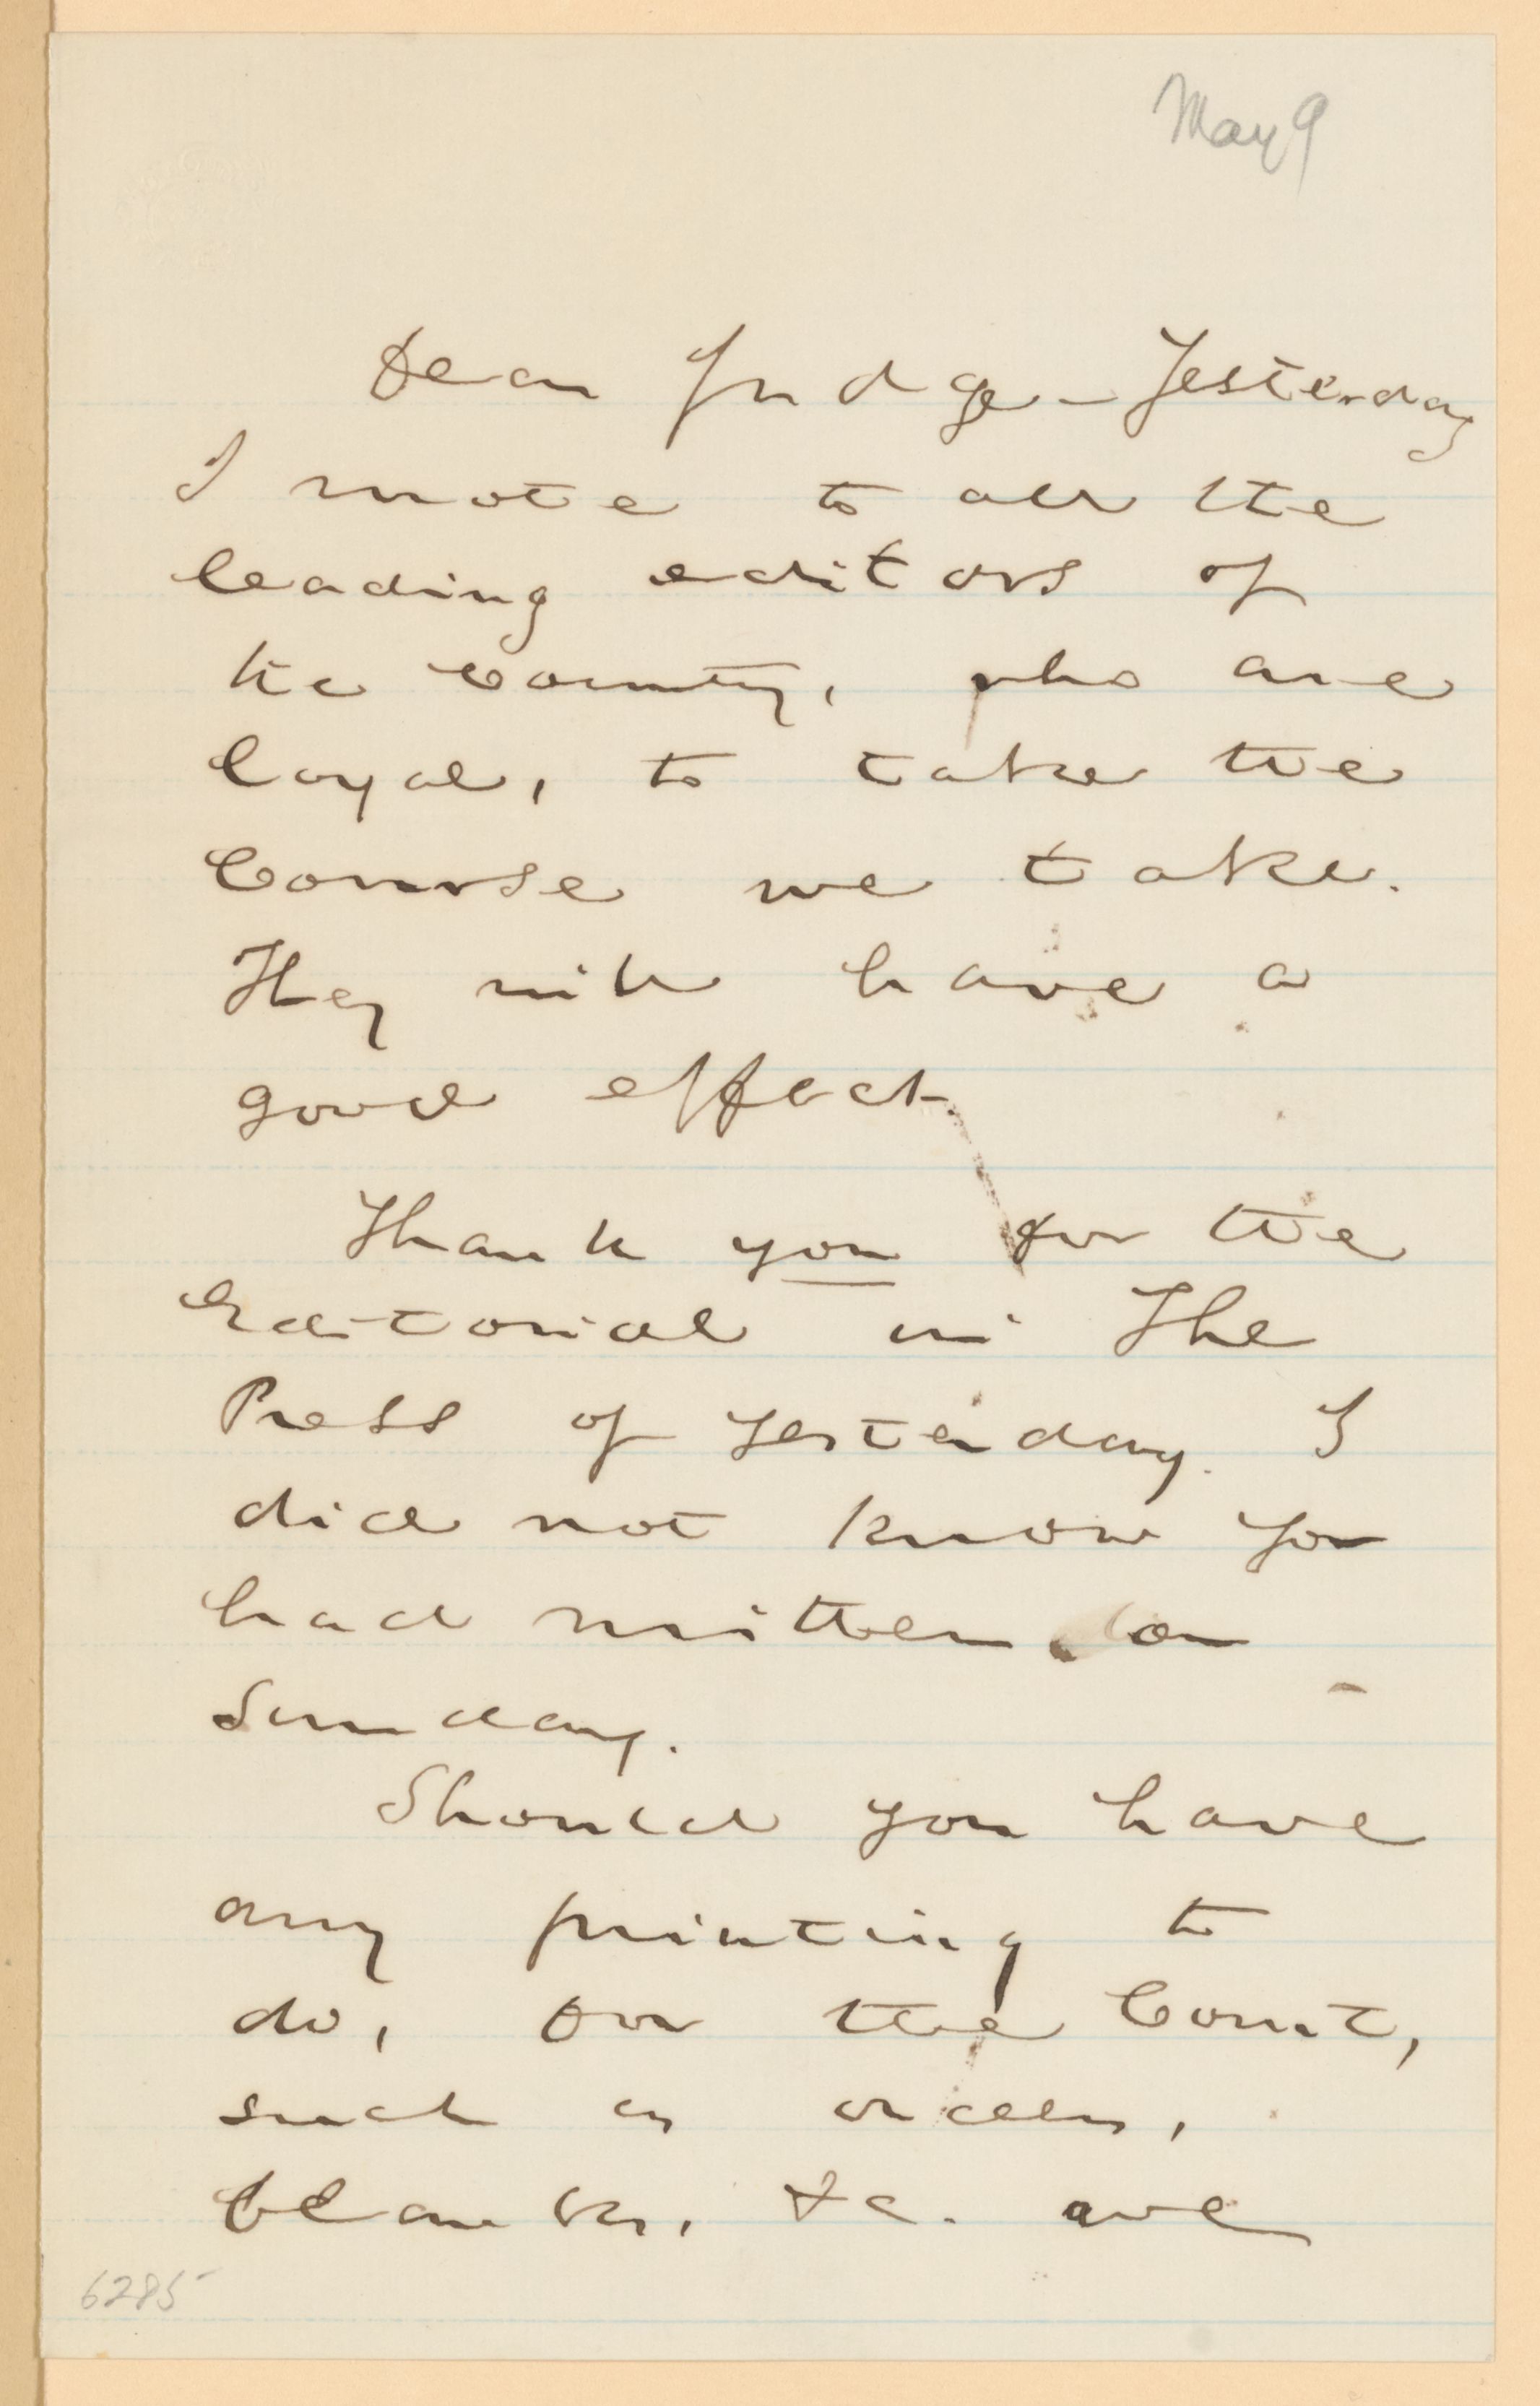 May 9
Dear Judge – Yesterday
I wrote to all the
leading editors of
the County, who are
loyal, to take the
Course we take.
They will have a
good effect
Thank you for the
Editorial in The
Press of yesterday. I
did not know you
had written on
Sunday.
Should you have
any printing to
do, for the Court,
such as orders,
blanks, &c. are
6285